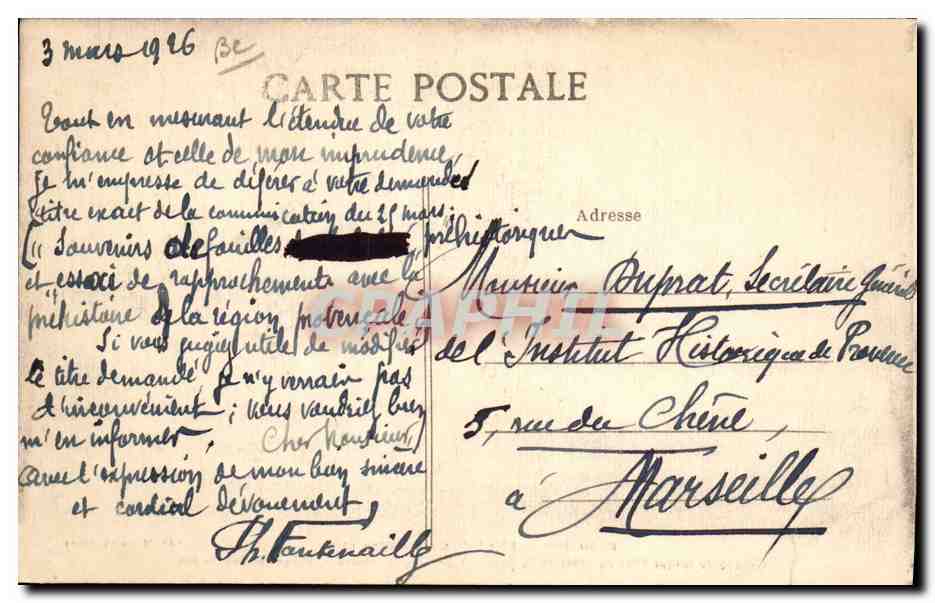 3 mars 1926
CARTE POSTALE
Tout en mesurant l'étendue de votre
confiance et celle de mon imprudence,
Je m'empresse de déférer à votre demande
titre exact de la communication du 25 mars :
" Souvenirs de fouilles préhistoriques
et essai de rapprochements avec la
préhistoire de la région provençale "
Si vous jugiez utile de modifier
le titre demandé, je n'y verrais pas
d'inconvénient ; vous voudriez bien
m'en informer, Cher Monsieur,
avec l'expression de mon bien sincère
et cordial dévouement,
Th. Fontenaille
Adresse
Monsieur Duprat, Secrétaire Général
de l'Institut Historique de Provence
5, rue du Chêne,
à Marseille
CPAPHIL